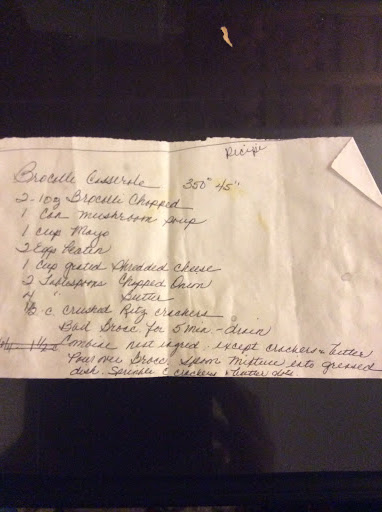 Recipe
Brocolli Casserole 350° 45"
2-10z Brocolli Chopped
1 Can mushroom soup
1 cup Mayo
2 Eggs Beaten
1 Cup grated Shredded cheese
2 Tablespoons Chopped Onion
2 " Butter
c crushed Ritz crackers
Boil Brocc for 5 min - drain
1 1/2 c Combine rest ingred. except crackers + butter
Pour over Brocc. Spoon mixture into greased
dish. Sprinkle c crackers + butter dots.